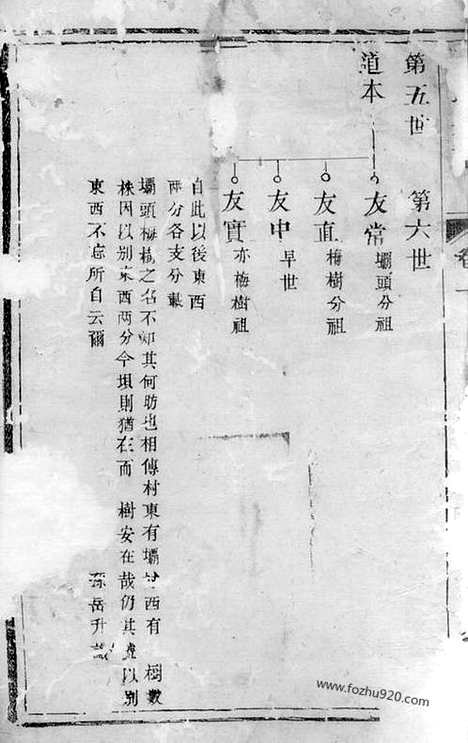 第五世　第六世
道本
友常　壩頭分祖
友直　梅樹分祖
友中　早世
友實　亦梅樹祖
自此以後東西
兩分各支分載
壩頭梅樹之名不知其何昉也相傳村東有壩　西有　樹數
株因以別東西兩分今壩則猶在而　樹安在哉仍其　以別
東西不忘所自云爾　孫岳升
卷一
www.fozhu920.com